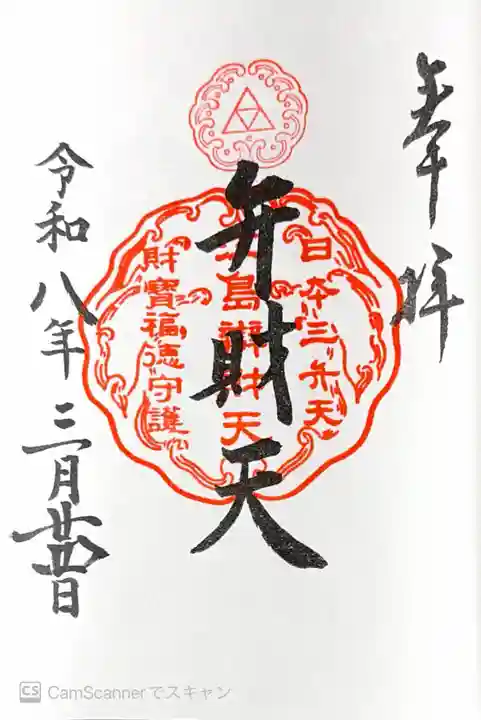 奉拝
日本三弁天
島辨財天
財寶福徳守護
弁財天
令和八年三月廿四日
CS CamScannerでスキャン